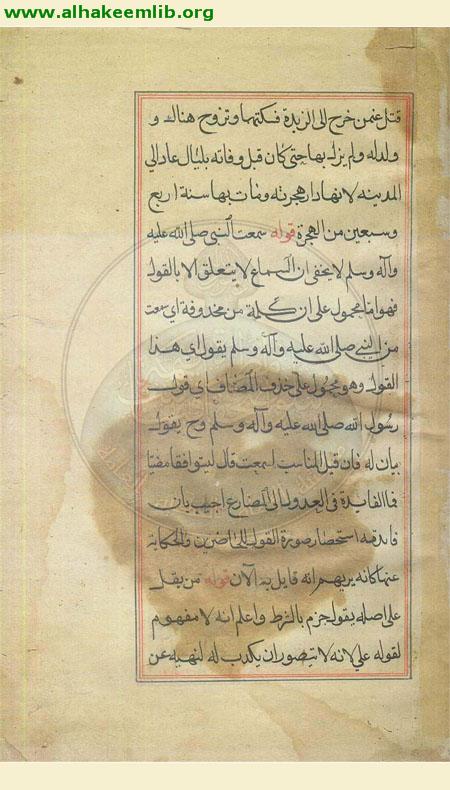 www.alhakeemlib.org
قتل عثمن خرج الى الربذة فسكنها وتزوج هناك و
ولد له ولم يزل بها حتى كان قبل وفاته بليال عاد الى
المدينه لانها دار هجرته ومات بها سنة اربع
وسبعين من الهجرة قوله سمعت النبي صلى الله عليه
وآله وسلم لا يخفى ان السماع لا يتعلق الا بالقول
فهو اما محمول على ان كلمة من محذوفة اي سمعت
من النبي صلى الله عليه وآله وسلم يقول اي هذا
القول وهو محمول على حذف المضاف اي قول
رسول الله صلى الله عليه وآله وسلم وح يقول
بيان له فان قيل المناسب اسمعت قال ليتوافقا مضيا
فما الفايدة في العدول الى المضارع اجيب بان
فايدته استحضار صورة القول للحاضرين والحكاية
عنها كانه يريهم انه قايل به الآن قوله من يقل
على اصله يقول جزم بالشرط واعلم انه لا مفهوم
لقوله علي لانه لا يتصور ان يكذب له لنهيه عن